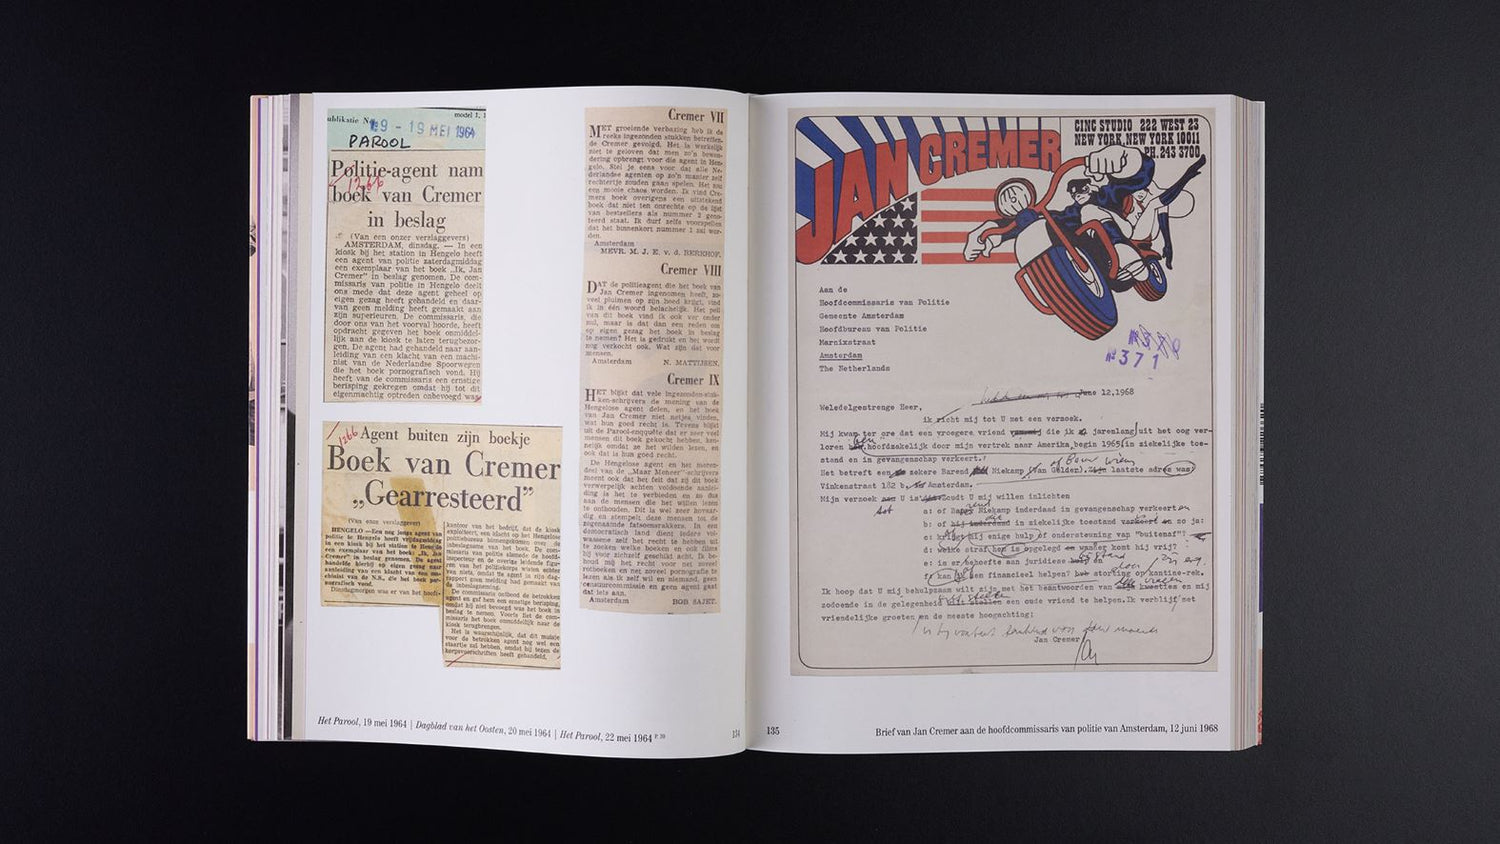 ublikatie No
model 1, 1
№ 9 - 19 MEI 1964
PAROOL
1266
Politie-agent nam
boek van Cremer
in beslag
(Van een onzer verslaggevers)
AMSTERDAM, dinsdag. — In een
kiosk bij het station in Hengelo heeft
een agent van politie zaterdagmiddag
een exemplaar van het boek „Ik, Jan
Cremer” in beslag genomen. De com-
missaris van politie in Hengelo deelt
ons mede dat deze agent geheel op
eigen gezag heeft gehandeld en daar-
van geen melding heeft gemaakt aan
zijn superieuren. De commissaris, die
door ons van het voorval hoorde, heeft
opdracht gegeven het boek onmiddel-
lijk aan de kiosk te laten terugbezor-
gen. De agent had gehandeld naar aan-
leiding van een klacht van een machi-
nist van de Nederlandse Spoorwegen
die het boek pornografisch vond. Hij
heeft van de commissaris een ernstige
berisping gekregen omdat hij tot dit
eigenmachtig optreden onbevoegd was.
1266
Agent buiten zijn boekje
Boek van Cremer
„Gearresteerd”
(Van onze verslaggever)
HENGELO — Een nog jonge agent van
politie te Hengelo heeft vrijdagmiddag
in een kiosk bij het station te Hengelo
een exemplaar van het boek „Ik, Jan
Cremer” in beslag genomen. De agent
handelde hierbij op eigen gezag naar
aanleiding van een klacht van een ma-
chinist van de N.S., die het boek por-
nografisch vond.
Dinsdagmorgen was er van het hoofd-
kantoor van het bedrijf, dat de kiosk
exploiteert, een klacht op het Hengelose
politiebureau binnengekomen over de
inbeslagname van het boek. De com-
missaris van politie alsmede de hoofd-
inspecteur en de overige leidende figu-
ren van het politiekorps wisten echter
van niets, omdat de agent in zijn dag-
rapport geen melding had gemaakt van
de inbeslagneming.
De commissaris ontbood de betrokken
agent en gaf hem een ernstige berisping,
omdat hij niet bevoegd was het boek in
beslag te nemen. Voorts liet de com-
missaris het boek onmiddellijk naar de
kiosk terugbrengen.
Het is waarschijnlijk, dat dit muisje
voor de betrokken agent nog wel een
staartje zal hebben, omdat hij tegen de
korpsvoorschriften heeft gehandeld.
Cremer VII
MET groeiende verbazing heb ik de
reeks ingezonden stukken betreffen-
de Cremer gevolgd. Het is werkelijk
niet te geloven dat men zo'n bewon-
dering opbrengt voor die agent in Hen-
gelo. Stel je eens voor dat alle Ne-
derlandse agenten op zo'n manier zelf
rechtertje zouden gaan spelen. Het zou
een mooie chaos worden. Ik vind Cre-
mers boek overigens een uitstekend
boek dat niet ten onrechte op de lijst
van bestsellers als nummer 2 geno-
teerd staat. Ik durf zelfs voorspellen
dat het binnenkort nummer 1 zal wor-
den.
Amsterdam
MEVR. M. J. E. v. d. BERKHOF.
Cremer VIII
DAT de politieagent die het boek van
Jan Cremer ingenomen heeft, zo-
veel pluimen op zijn hoed krijgt, vind
ik in één woord belachelijk. Het peil
van dit boek vind ik ook ver onder
nul, maar is dat dan een reden om
op eigen gezag het boek in beslag
te nemen? Het is gedrukt en het wordt
nog verkocht ook. Wat zijn dat voor
mensen.
Amsterdam N. MATTIJSEN.
Cremer IX
HET blijkt dat vele ingezonden-stuk-
ken-schrijvers de mening van de
Hengelose agent delen, en het boek
van Jan Cremer niet netjes vinden,
wat hun goed recht is. Tevens blijkt
uit de Parool-enquête dat er zeer veel
mensen dit boek gekocht hebben, ken-
nelijk omdat ze het wilden lezen, en
ook dat is hun goed recht.
De Hengelose agent en het meren-
deel van de „Maar Meneer”-schrijvers
meent ook dat het feit dat zij dit boek
verwerpelijk achten voldoende aanlei-
ding is het te verbieden en zo dus
aan de mensen die het willen lezen
te onthouden. Dit is wel zeer hovaar-
dig en stempelt deze mensen tot de
zogenaamde fatsoensrakkers. In een
democratisch land dient ieder vol-
wassene zelf het recht te hebben uit
te zoeken welke boeken en ook films
hij voor zichzelf geschikt acht. Ik be-
houd mij het recht voor net zoveel
rotboeken en net zoveel pornografie te
lezen als ik zelf wil en niemand, geen
censuurcommissie en geen agent gaat
dat iets aan.
Amsterdam BOB SAJET.
Het Parool, 19 mei 1964 | Dagblad van het Oosten, 20 mei 1964 | Het Parool, 22 mei 1964 P. 20
134
JAN CREMER
CINC STUDIO 222 WEST 23
NEW YORK, NEW YORK 10011
PH. 243 3700
Aan de
Hoofdcommissaris van Politie
Gemeente Amsterdam
Hoofdbureau van Politie
Marnixstraat
Amsterdam
The Netherlands
№ 371
June 12,1968
Weledelgestrenge Heer,
ik richt mij tot U met een verzoek.
Mij kwam ter ore dat een vroegere vriend die ik jarenlang uit het oog ver-
loren ben, hoofdzakelijk door mijn vertrek naar Amerika, begin 1965, in ziekelijke toe-
stand en in gevangenschap verkeert.
Het betreft een zekere Barend Niekamp (Van Gelder). Zijn laatste adres was:
Vinkenstraat 182 b, Amsterdam.
Mijn verzoek aan U is: Zoudt U mij willen inlichten
a: of Barend Niekamp inderdaad in gevangenschap verkeert en
b: of hij inderdaad in ziekelijke toestand verkeert en zo ja:
c: krijgt hij enige hulp of ondersteuning van "buitenaf"?
d: welke straf hem is opgelegd en wanneer komt hij vrij?
e: is er behoefte aan juridiese hulp en
f: kan ik een financieel helpen? bvb storting op kantine-rek.
Ik hoop dat U mij behulpzaam wilt zijn met het beantwoorden van kwesties en mij
zodoende in de gelegenheid wilt stellen een oude vriend te helpen. Ik verblijf met
vriendelijke groeten en de meeste hoogachting:
Jan Cremer
135
Brief van Jan Cremer aan de hoofdcommissaris van politie van Amsterdam, 12 juni 1968